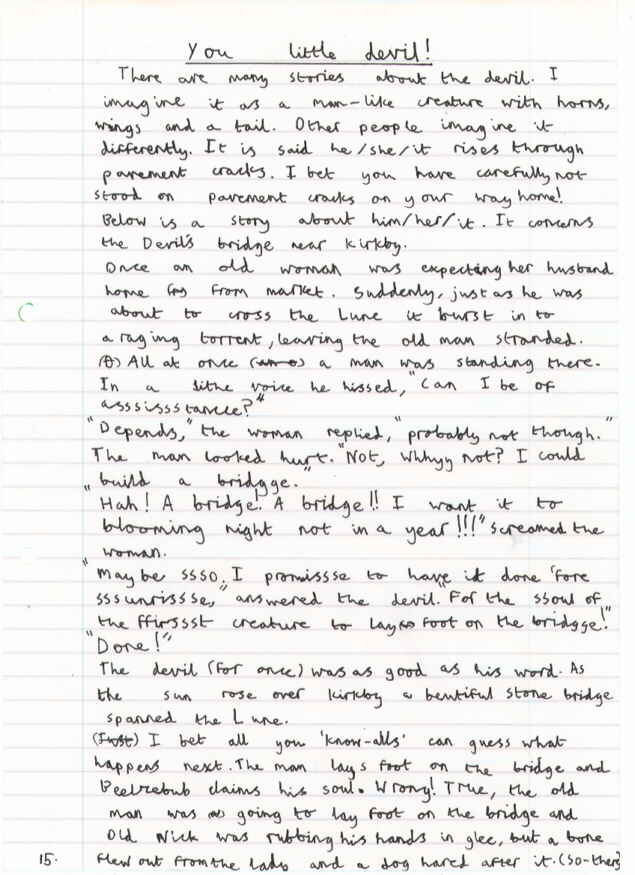 You little devil!
There are many stories about the devil. I
imagine it as a man-like creature with horns,
wings and a tail. Other people imagine it
differently. It is said he/she/it rises through
pavement cracks. I bet you have carefully not
stood on pavement cracks on your way home!
Below is a story about him/her/it. It concerns
the Devil's bridge near Kirkby.
Once an old woman was expecting her husband
home from market. Suddenly, just as he was
about to cross the Lune it burst in to
a raging torrent, leaving the old man stranded.
All at once a man was standing there.
In a lithe voice he hissed, "Can I be of
asssissstance?"
"Depends," the woman replied, "probably not though."
The man looked hurt. "Not, whhyy not? I could
build a bridgge."
"Hah! A bridge! A bridge!! I want it to
blooming night not in a year!!!" screamed the
woman.
"Maybe ssso. I promissse to have it done 'fore
sssunrissse," answered the devil. "For the ssoul of
the ffirssst creature to lay foot on the bridgge!"
"Done!"
The devil (for once) was as good as his word. As
the sun rose over Kirkby a beutiful stone bridge
spanned the Lune.
I bet all you 'know-alls' can guess what
happens next. The man lays foot on the bridge and
Beelzebub claims his soul. Wrong! True, the old
man was going to lay foot on the bridge and
Old Nick was rubbing his hands in glee, but a bone
15. flew out from the lady and a dog hared after it. (So-there)